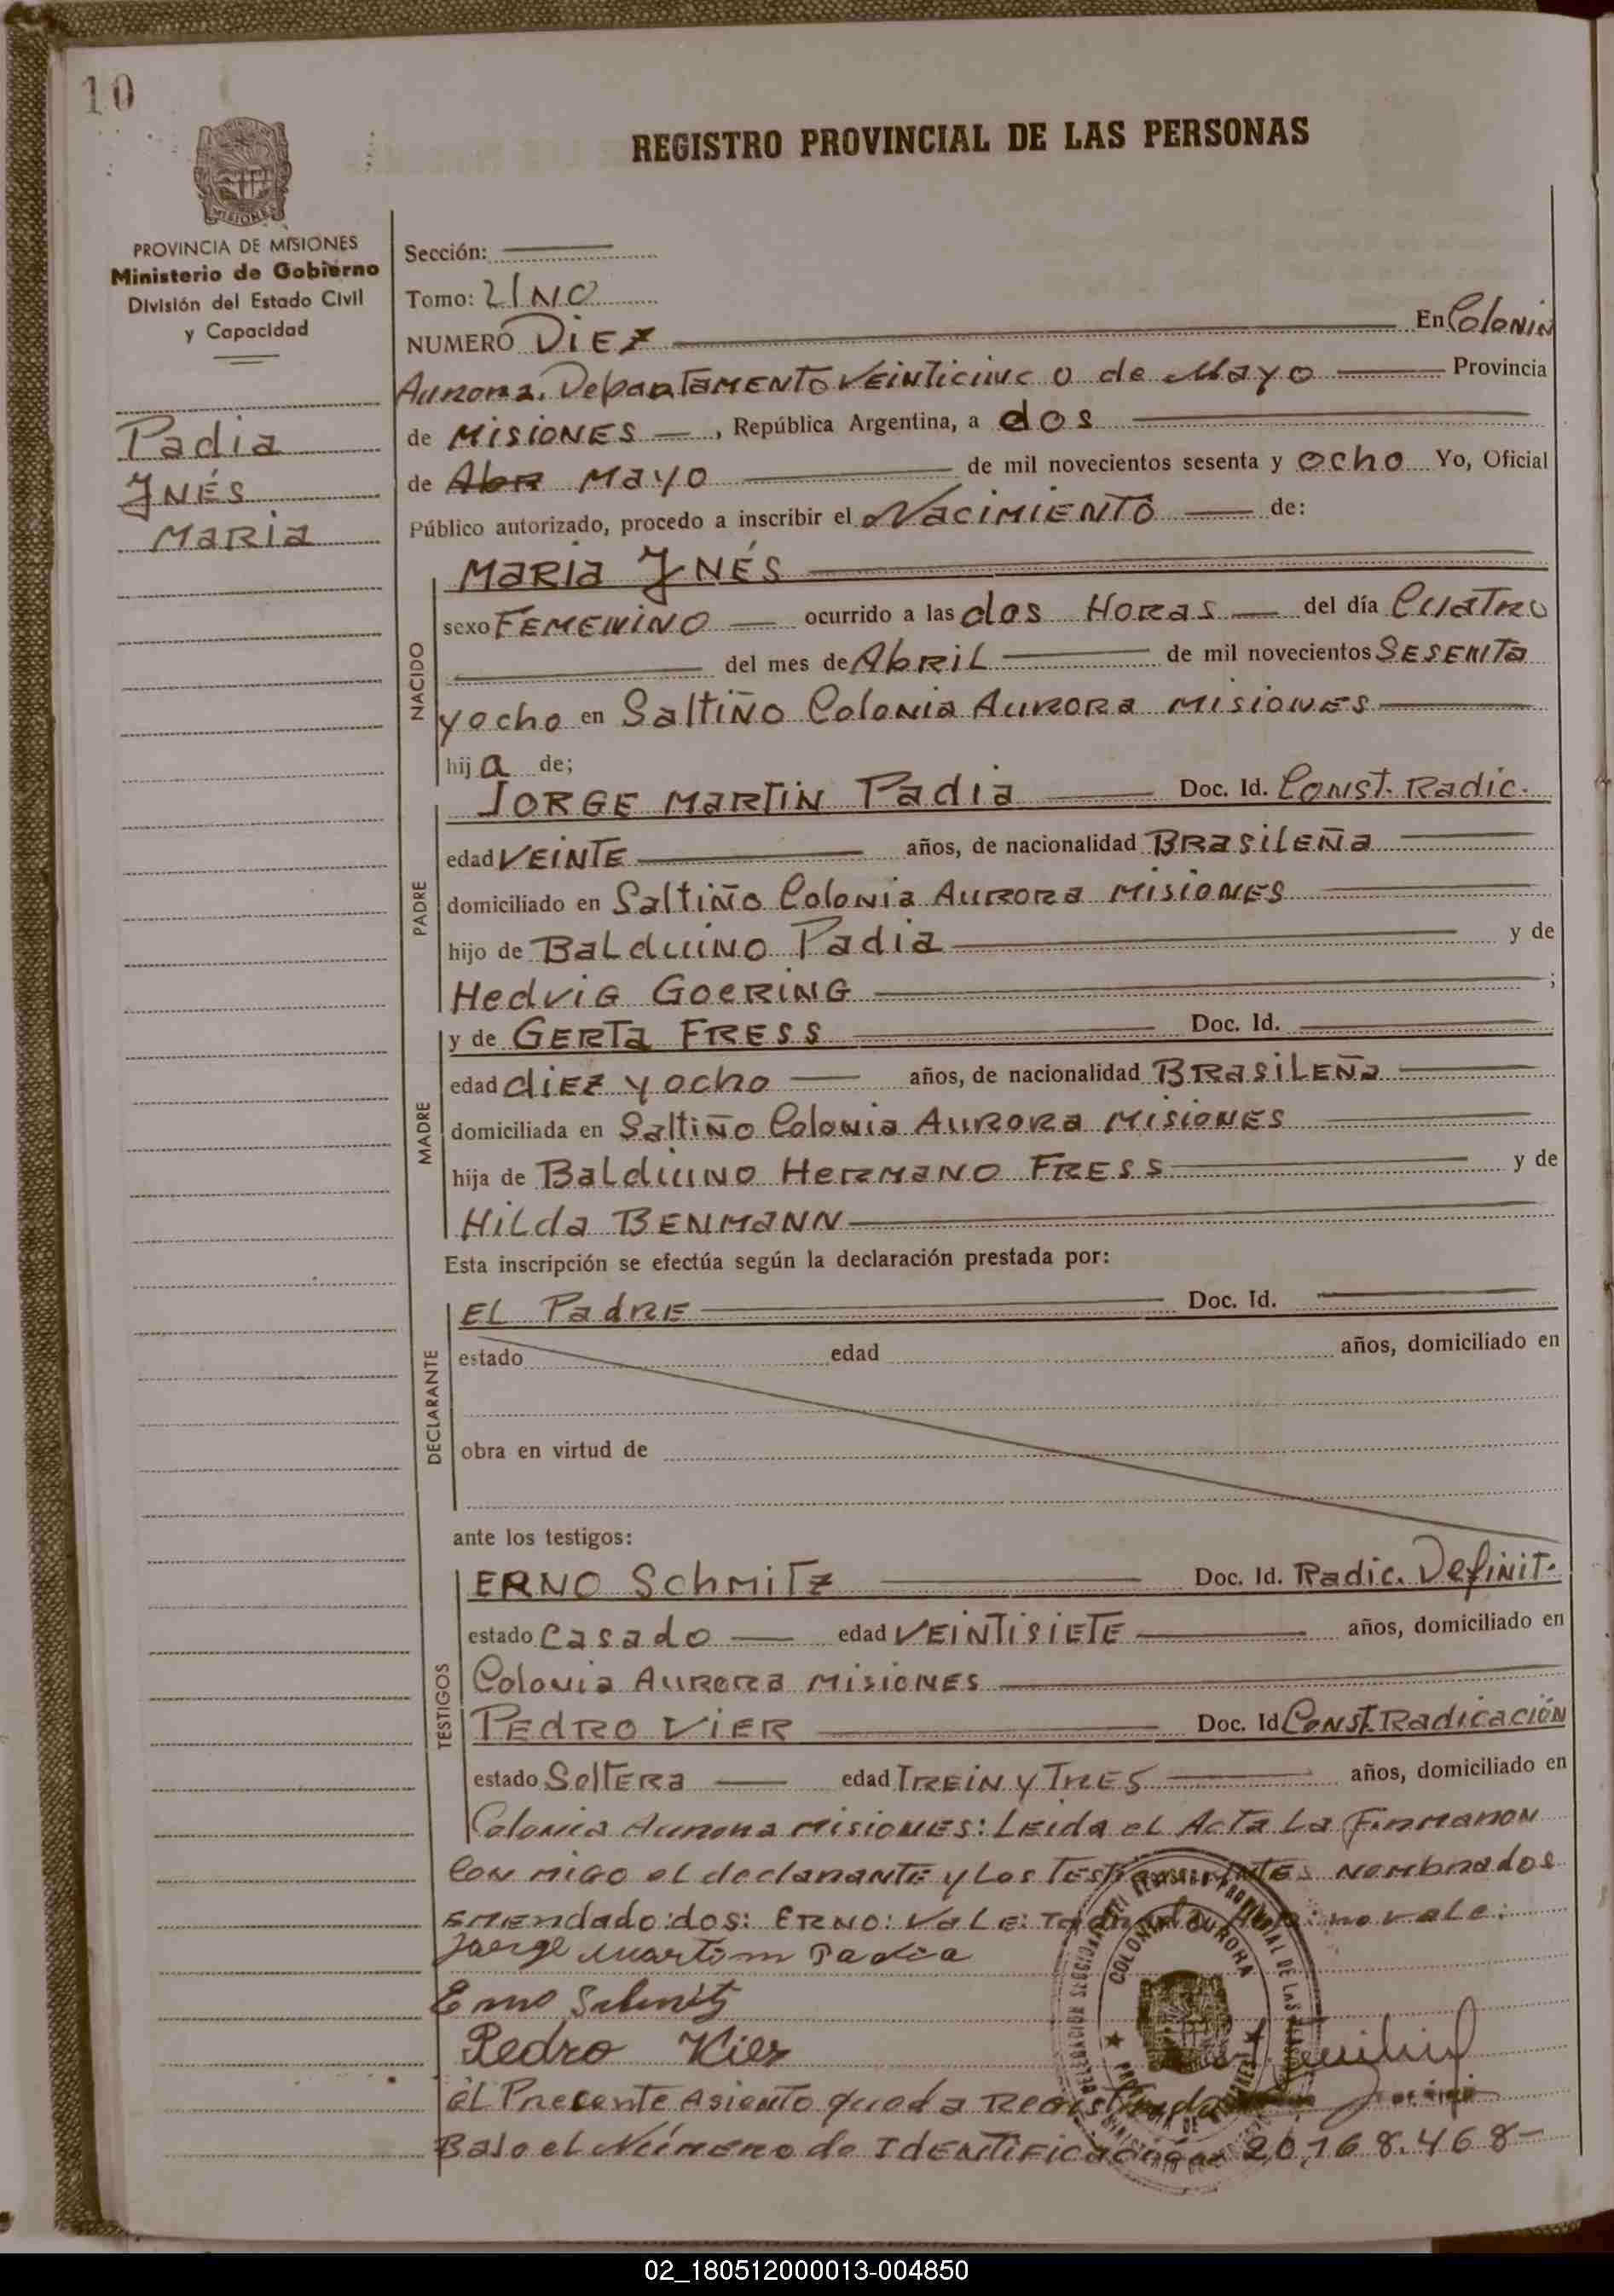 10
REGISTRO PROVINCIAL DE LAS PERSONAS
MISIONES
PROVINCIA DE MISIONES
Ministerio de Gobierno
División del Estado Civil
y Capacidad
Padia
YNÉS
MARIA
Sección:
Tomo: UNO
NUMERO DIEZ En Colonia
Aurora. Departamento Veinticinco de Mayo Provincia
de MISIONES, República Argentina, a dos
de Abr Mayo de mil novecientos sesenta y ocho Yo, Oficial
Público autorizado, procedo a inscribir el NACIMIENTO de:
NACIDO
MARIA YNÉS
sexo FEMENINO ocurrido a las dos HORAS del día CUATRO
del mes de ABRIL de mil novecientos SESENTA
y ocho en Saltiño Colonia AURORA MISIONES
hija de;
PADRE
JORGE MARTIN Padia Doc. Id. Const. Radic.
edad VEINTE años, de nacionalidad BRASILEÑA
domiciliado en Saltiño Colonia AURORA MISIONES
hijo de BALduiNO Padia y de
HedviG GOERING ;
MADRE
y de GERTA FRESS Doc. Id.
edad diEZ y ocho años, de nacionalidad BRASILEÑA
domiciliada en Saltiño Colonia AURORA MISIONES
hija de BalduiNO HERMANO FRESS y de
HILda BENMANN
Esta inscripción se efectúa según la declaración prestada por:
DECLARANTE
EL PadRE Doc. Id.
estado edad años, domiciliado en
obra en virtud de
ante los testigos:
TESTIGOS
ERNO SchmiTZ Doc. Id. Radic. DefiNit.
estado casado edad VEINTISIETE años, domiciliado en
Colonia AURORA MISIONES
PEdRO VIER Doc. Id Const. Radicación
estado SolTERa edad TREIN y TRES años, domiciliado en
Colonia Aurora MISIONES: Leida el Acta La Firmaron
con migo el declarante y Los nombrados
Emendado: dos: ERNO: VaLE: no vale:
Jorge Martim Padia
Erno Schmitz
Pedro Vier
COLONIA AURORA
él Precente Asiento queda Registrado
Bajo el Número de IDENTIFICACIÓN 20,168.468-
02_180512000013-004850